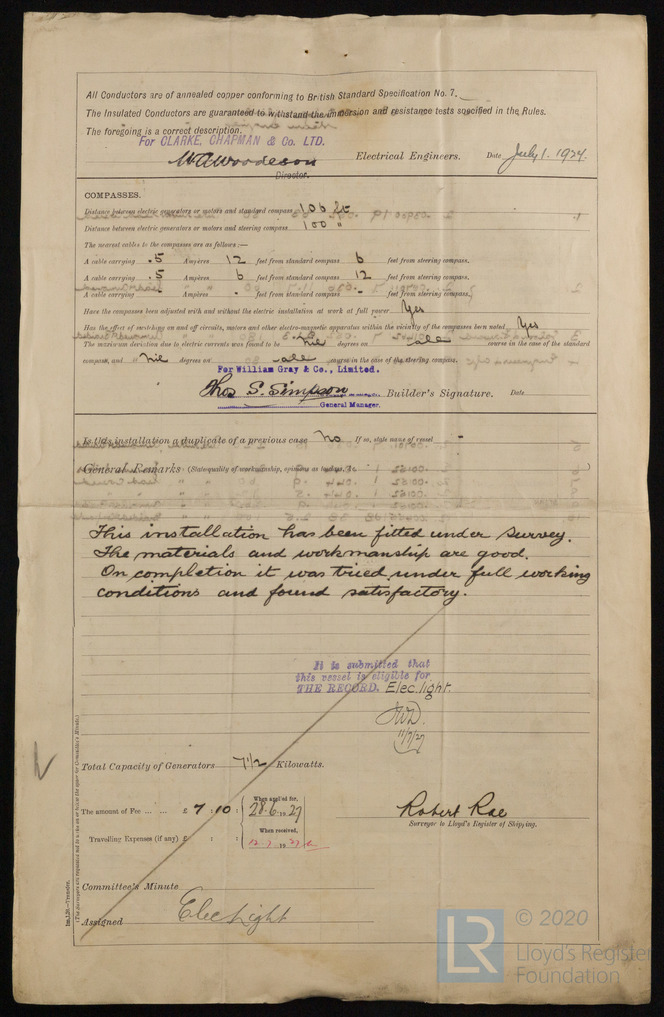 All Conductors are of annealed copper conforming to British Standard Specification No. 7.
The Insulated Conductors are guaranteed to withstand the immersion and resistance tests specified in the Rules.
The foregoing is a correct description.
For CLARKE, CHAPMAN & Co. LTD.
W A Woodeson Electrical Engineers. Date July 1. 1927.
Director.
COMPASSES.
Distance between electric generators or motors and standard compass 106 ft
Distance between electric generators or motors and steering compass 100 "
The nearest cables to the compasses are as follows:—
A cable carrying .5 Ampères 12 feet from standard compass 6 feet from steering compass.
A cable carrying .5 Ampères 6 feet from standard compass 12 feet from steering compass.
A cable carrying - Ampères - feet from standard compass - feet from steering compass.
Have the compasses been adjusted with and without the electric installation at work at full power Yes
Has the effect of switching on and off circuits, motors and other electro-magnetic apparatus within the vicinity of the compasses been noted Yes
The maximum deviation due to electric currents was found to be nil degrees on all course in the case of the standard
compass, and nil degrees on all course in the case of the steering compass.
For William Gray & Co., Limited.
Thos S. Simpson Builder's Signature. Date
General Manager.
Is this installation a duplicate of a previous case No If so, state name of vessel -
General Remarks (State quality of workmanship, opinions as to class, &c.)
This installation has been fitted under survey.
The materials and workmanship are good.
On completion it was tried under full working
conditions and found satisfactory.
It is submitted that
this vessel is eligible for
THE RECORD. Elec. light.
JWD.
11/7/27
Total Capacity of Generators 7½ Kilowatts.
The amount of Fee ... ... £ 7 : 10 : When applied for, 28.6.1927
Travelling Expenses (if any) £ : : When received,
Robert Rae
Surveyor to Lloyd's Register of Shipping.
Committee's Minute
Assigned Elec Light
© 2020
LR Lloyd's Register
Foundation